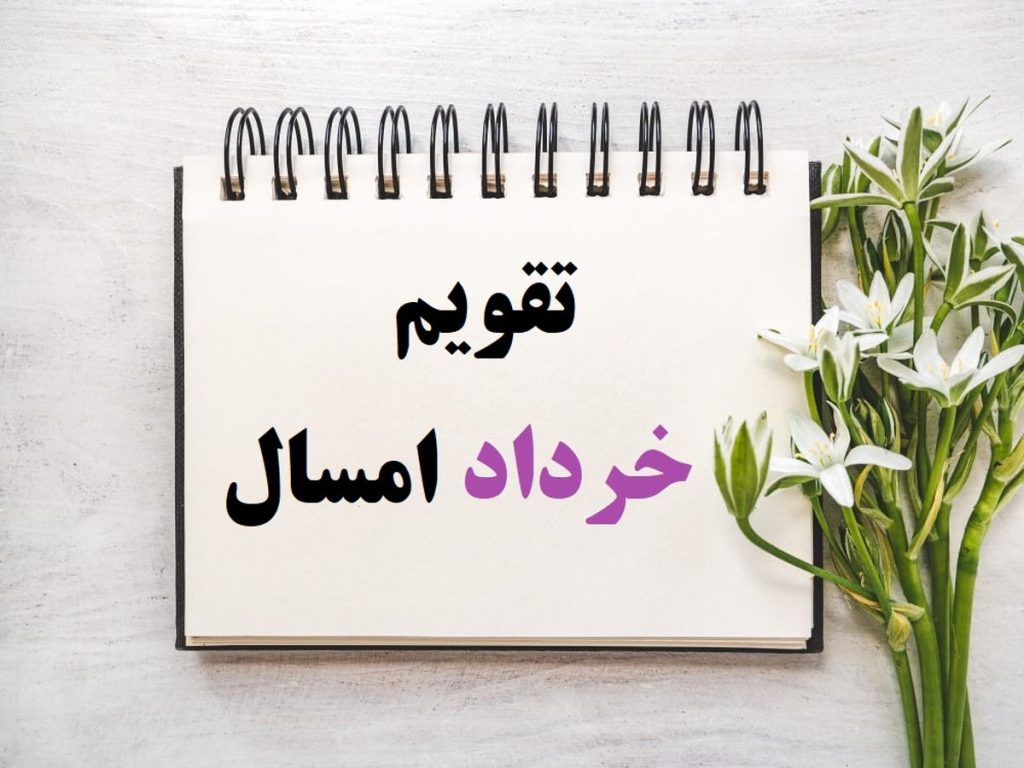 تقویم
خرداد امسال